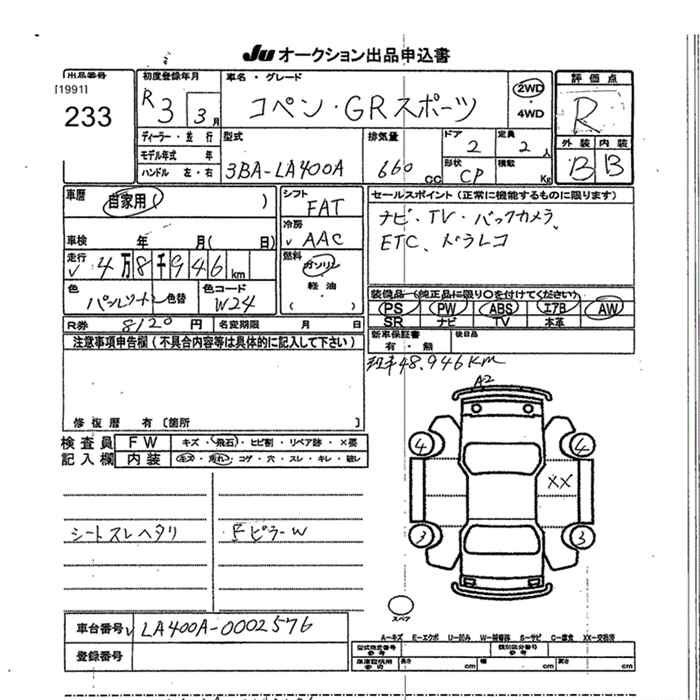 Ju オークション出品申込書
出品番号
[1991]
233
初度登録年月
R3 3月
車名・グレード
コペン・GRスポーツ
2WD
4WD
評価点
R
外装 内装
B B
ディーラー・並行
モデル年式 年
ハンドル 左・右
型式
3BA-LA400A
排気量
660 CC
ドア
2
定員
2人
形状
CP
積載
Kg
車歴
自家用 ( )
シフト
FAT
車検 年 月( 日)
冷房
AAC
走行
4万8千946km
燃料
ガソリン
軽油
( )
色
色替
色コード
W24
R券 8120円 名変期限 月 日
セールスポイント(正常に機能するものに限ります)
ナビ・TV・バックカメラ
ETC、ドラレコ
装備品(純正品に限り○を付けてください)
PS PW ABS エアB AW
SR ナビ TV 本革
新車保証書
有・無
後日品
注意事項申告欄(不具合内容等は具体的に記入して下さい)
48.946Km
修復歴 有〔箇所 〕
検査員
記入欄
FW キズ・飛石・ヒビ割・リペア跡・×要
内装 キズ・汚れ・コゲ・穴・スレ・キレ・破レ
シートスレヘタリ
FピラーW
A2
4 4
XX
3 3
スペア
車台番号 LA400A-0002576
登録番号
A-キズ E-エクボ U-凹み W-補修跡 S-サビ C-腐食 XX-交換済
型式指定番号
参考
類別区分番号
参考
車庫証明用
参考
長さ cm 幅 cm 高さ cm